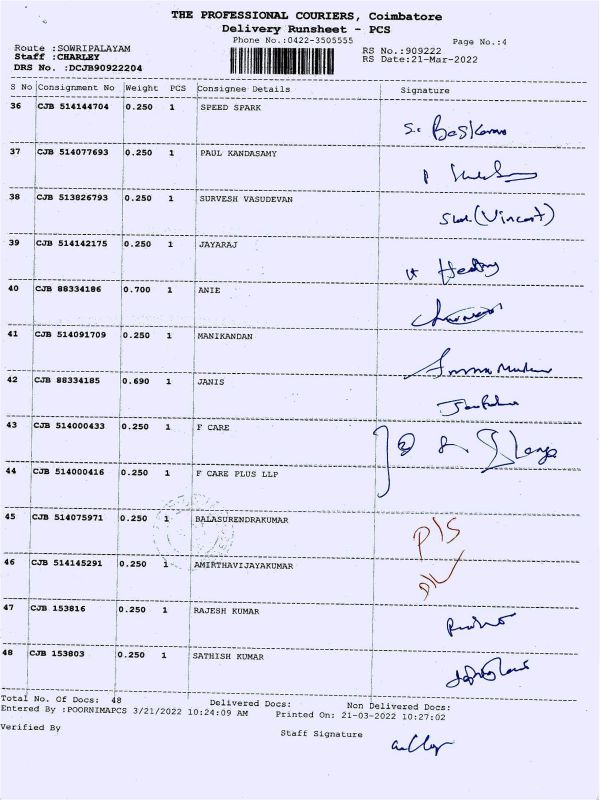 THE PROFESSIONAL COURIERS, Coimbatore
Delivery Runsheet - PCS
Phone No.:0422-3505555
Page No.:4
Route :SOWRIPALAYAM
RS No.:909222
Staff :CHARLEY
RS Date:21-Mar-2022
DRS No. :DCJB90922204
S No Consignment No Weight PCS Consignee Details Signature
36 CJB 514144704 0.250 1 SPEED SPARK
S. Baskaran
37 CJB 514077693 0.250 1 PAUL KANDASAMY
38 CJB 513826793 0.250 1 SURVESH VASUDEVAN
(Vincent)
39 CJB 514142175 0.250 1 JAYARAJ
40 CJB 88334186 0.700 1 ANIE
41 CJB 514091709 0.250 1 MANIKANDAN
42 CJB 88334185 0.690 1 JANIS
43 CJB 514000433 0.250 1 F CARE
44 CJB 514000416 0.250 1 F CARE PLUS LLP
45 CJB 514075971 0.250 1 BALASURENDRAKUMAR
P/S
46 CJB 514145291 0.250 1 AMIRTHAVIJAYAKUMAR
47 CJB 153816 0.250 1 RAJESH KUMAR
48 CJB 153803 0.250 1 SATHISH KUMAR
Total No. Of Docs: 48 Delivered Docs: Non Delivered Docs:
Entered By :POORNIMAPCS 3/21/2022 10:24:09 AM Printed On: 21-03-2022 10:27:02
Verified By Staff Signature